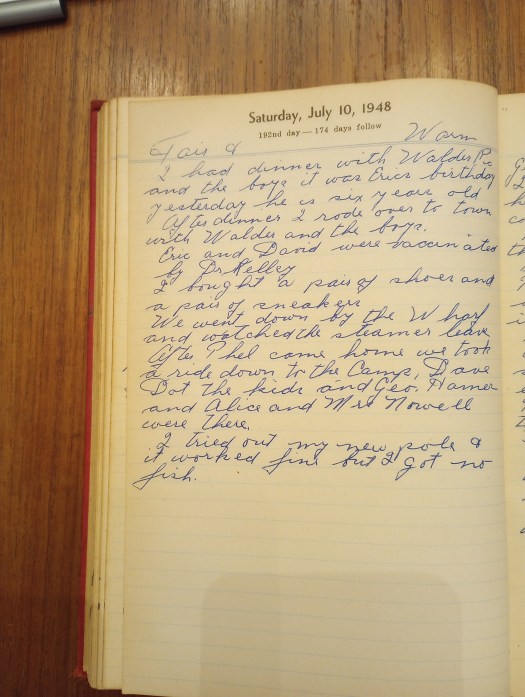 Saturday, July 10, 1948
192nd day — 174 days follow
Fair & Warm
I had dinner with Walder, Pic
and the boys it was Erics birthday
yesterday he is six years old
After dinner I rode over to town
with Walder and the boys.
Eric and David were vaccinated
by Dr Kelley
I bought a pair of shoes and
a pair of sneakers
We went down by the Wharf
and watched the steamer leave
After Phel came home we took
a ride down to the Camp, Dave
Dot the kids and Geo. Hamer
and Alice and Mrs Nowell
were there.
I tried out my new pole &
it worked fine but I got no
fish.